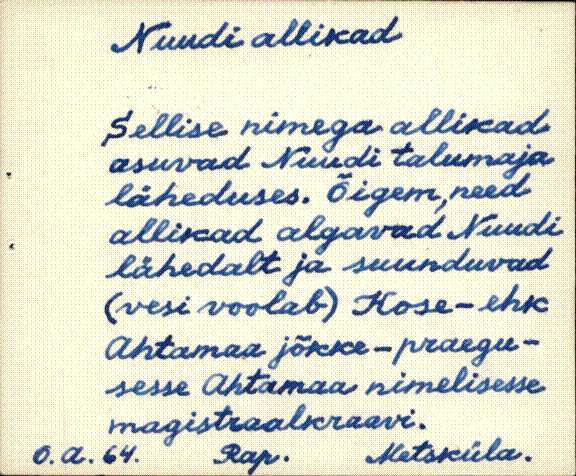 Nuudi allikad
Sellise nimega allikad
asuvad Nuudi talumaja
läheduses. Õigem, need
allikad algavad Nuudi
lähedalt ja suunduvad
(vesi voolab) Kose - ehk
Ahtamaa jõkke - praegu-
sesse Ahtamaa nimelisesse
magistraalkraavi.
O. A. 64. Rap. Metsküla.